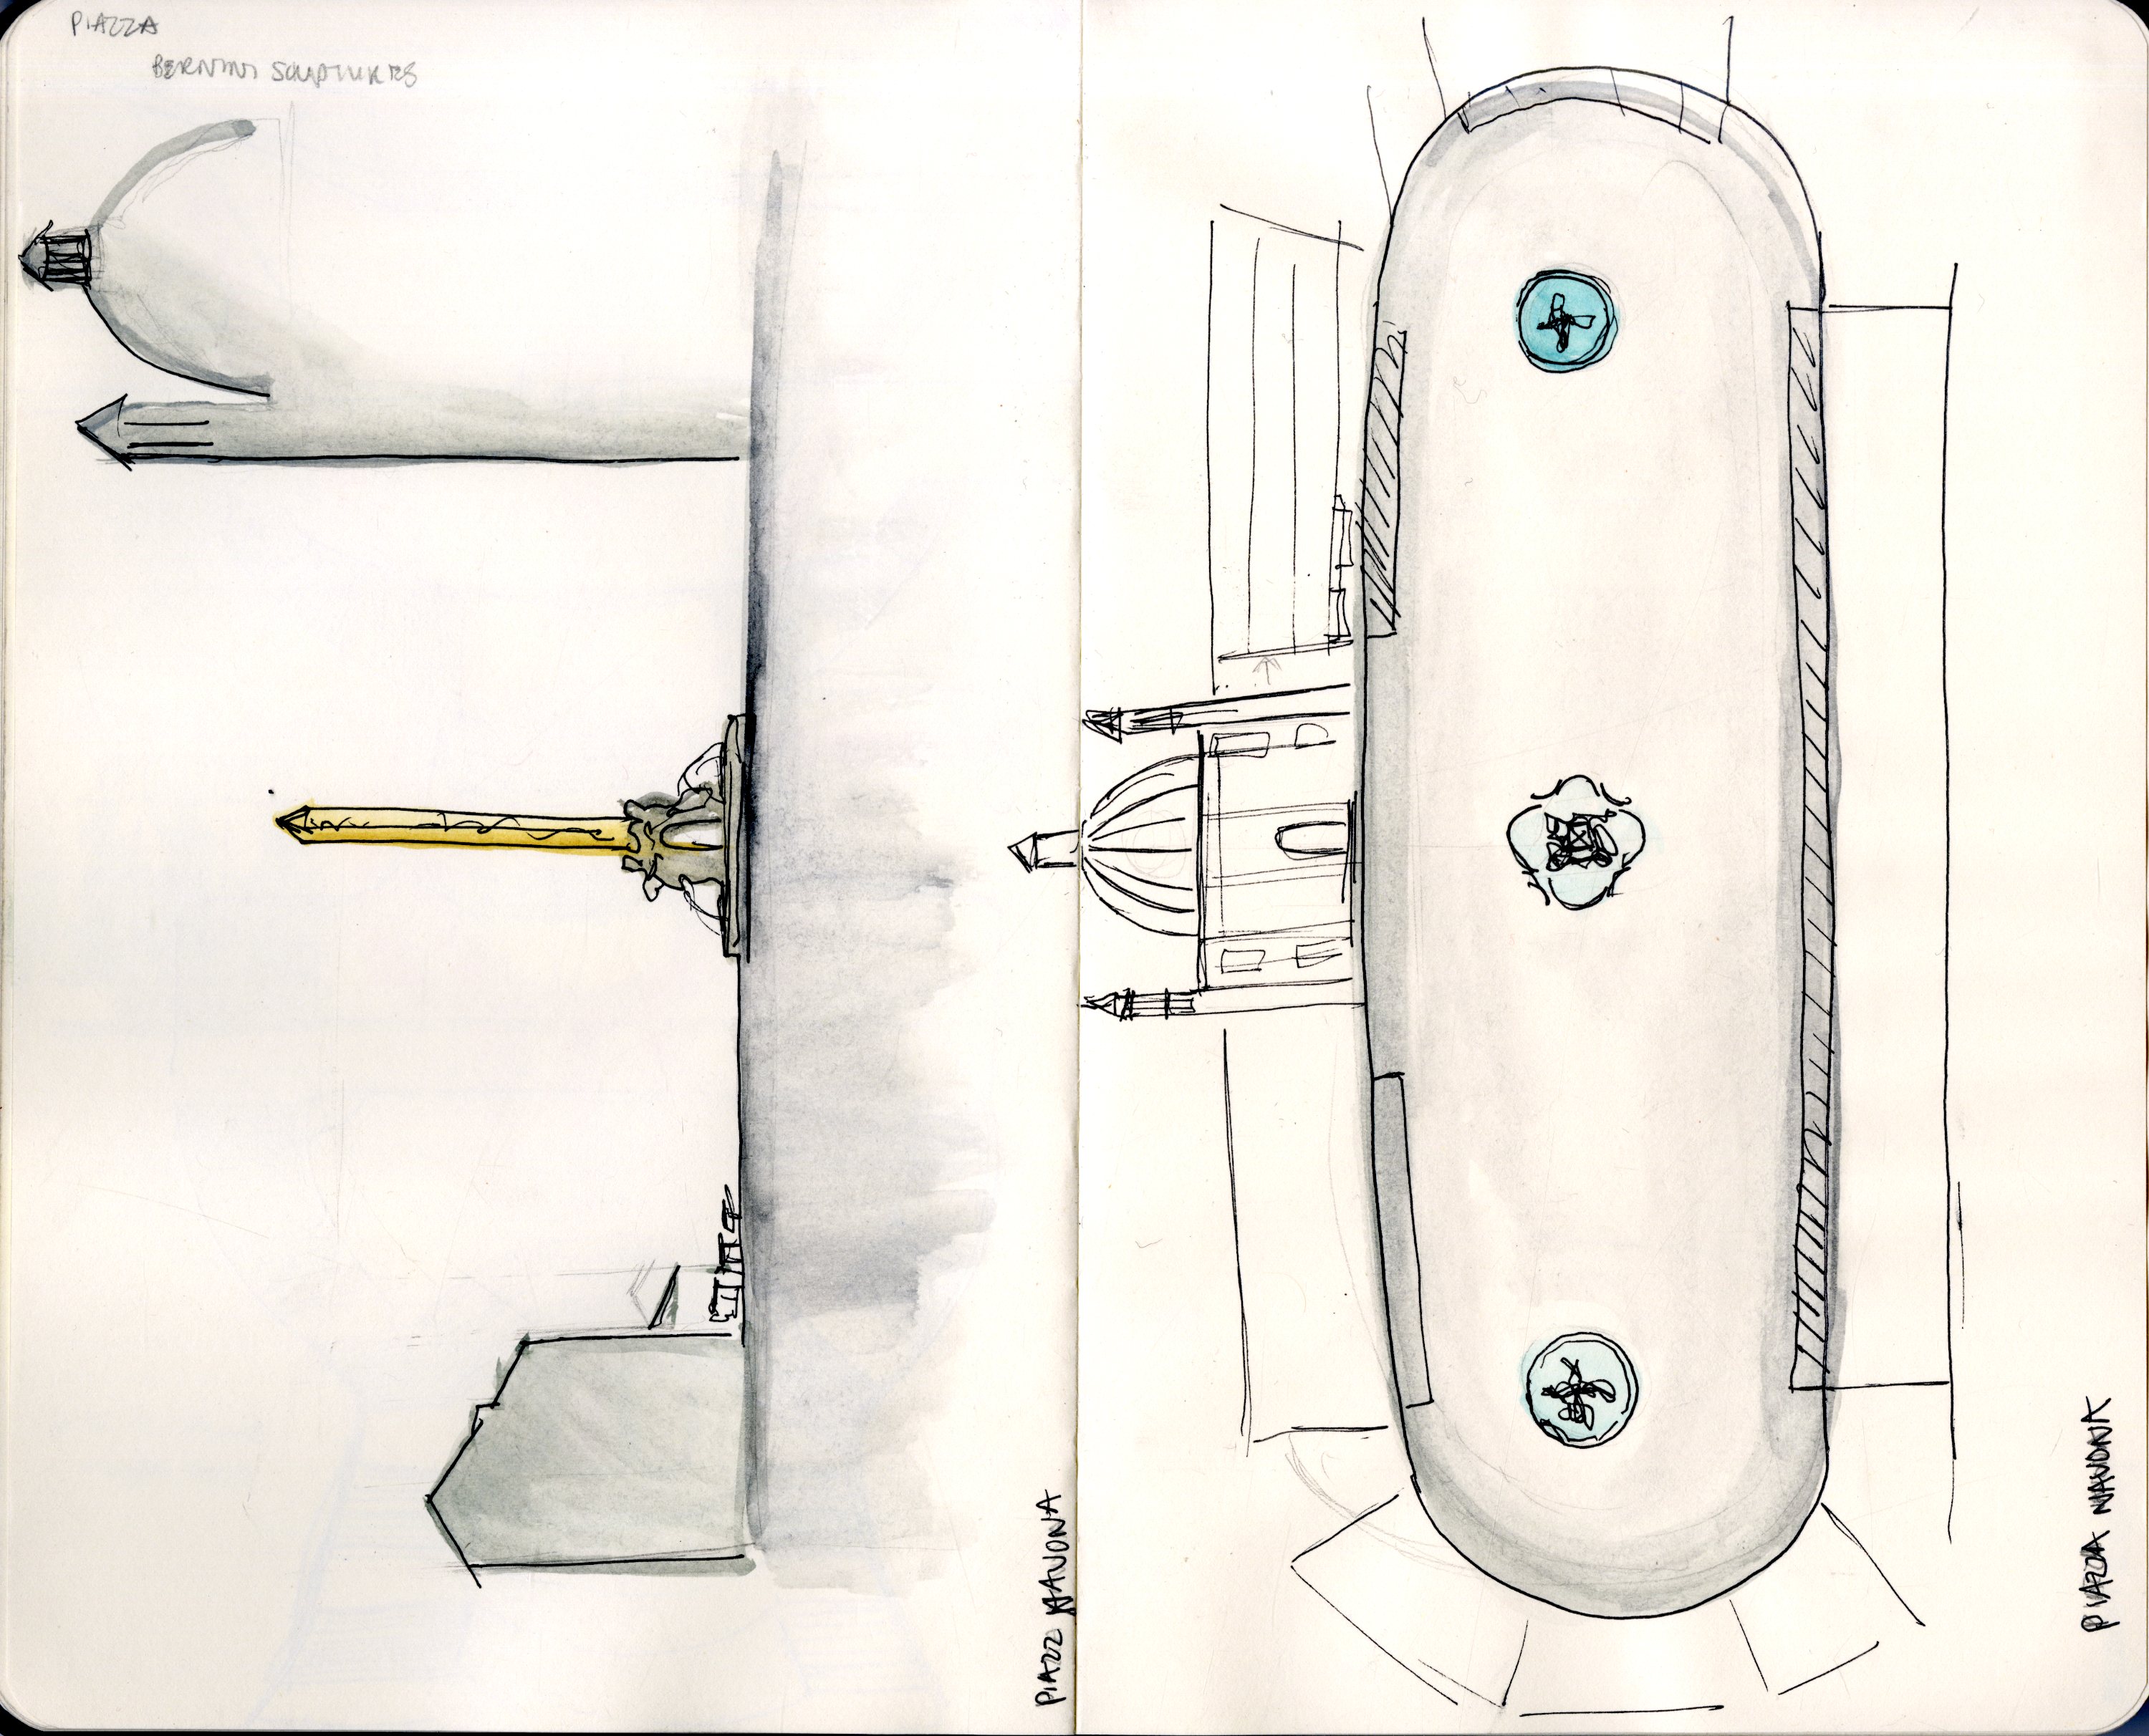 PIAZZA
BERNINI SCULPTURES
PIAZZ NAVONA
PIAZZA NAVONA